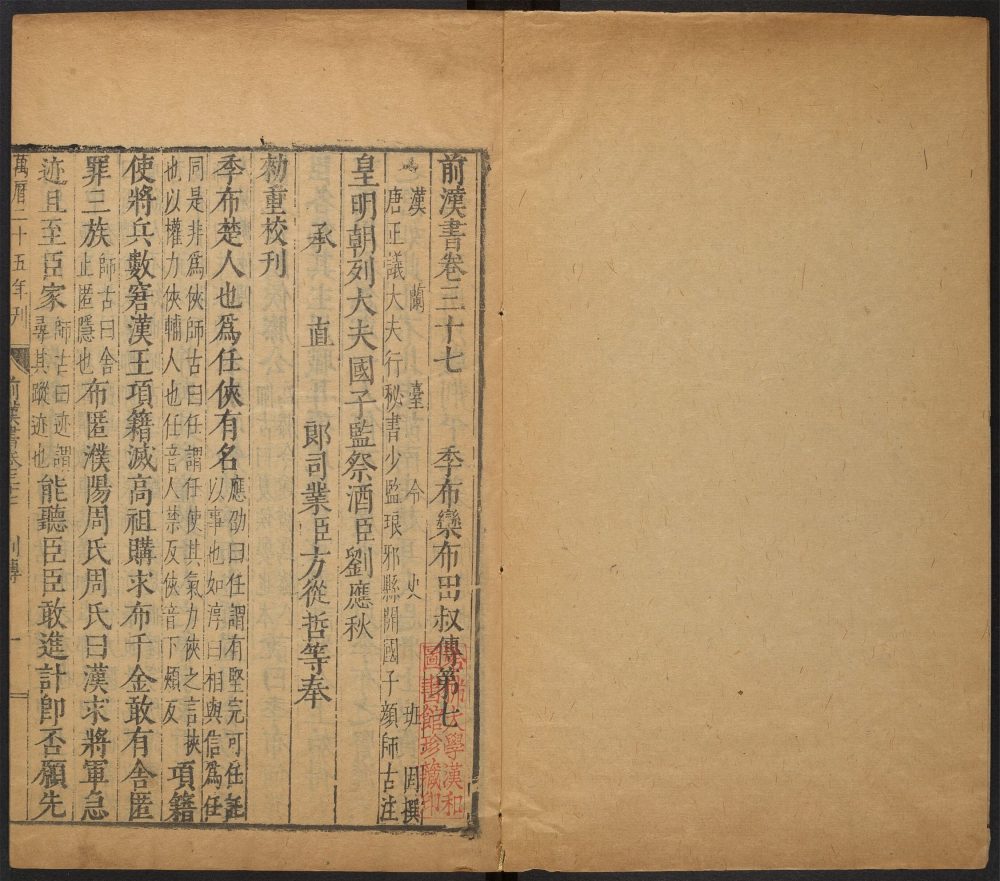 前漢書卷三十七 季布欒布田叔傳第七
漢蘭臺令史班固撰
唐正議大夫行秘書少監琅邪縣開國子顏師古注
皇明朝列大夫國子監祭酒臣劉應秋
承直郎司業臣方從哲等奉
勑重校刋
季布楚人也爲任俠有名應劭曰任謂有堅完可任託以事也如淳曰相與信爲任
同是非爲俠師古曰任謂任使其氣力俠之言挾也以權力俠輔人也任音人禁反俠音下頰反項籍
使將兵數窘漢王項籍滅高祖購求布千金敢有舍匿
罪三族師古曰舍止匿隱也布匿濮陽周氏周氏曰漢求將軍急
迹且至臣家師古曰迹謂尋其蹤迹也能聽臣臣敢進計卽否願先
萬曆二十五年刋 前漢書卷三十七 列傳 一
哈佛大學漢和圖書館珍藏印